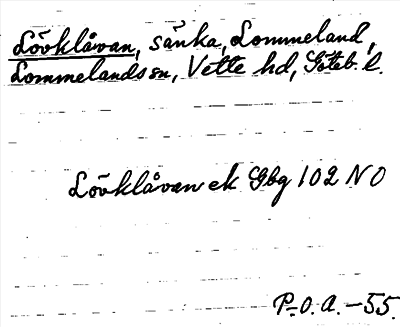 Lövklåvan, sänka, Lommeland,
Lommelands sn, Vette hd, Göteb. l.
Lövklåvan ek Gbg 102 NO
P-O.A. -55.